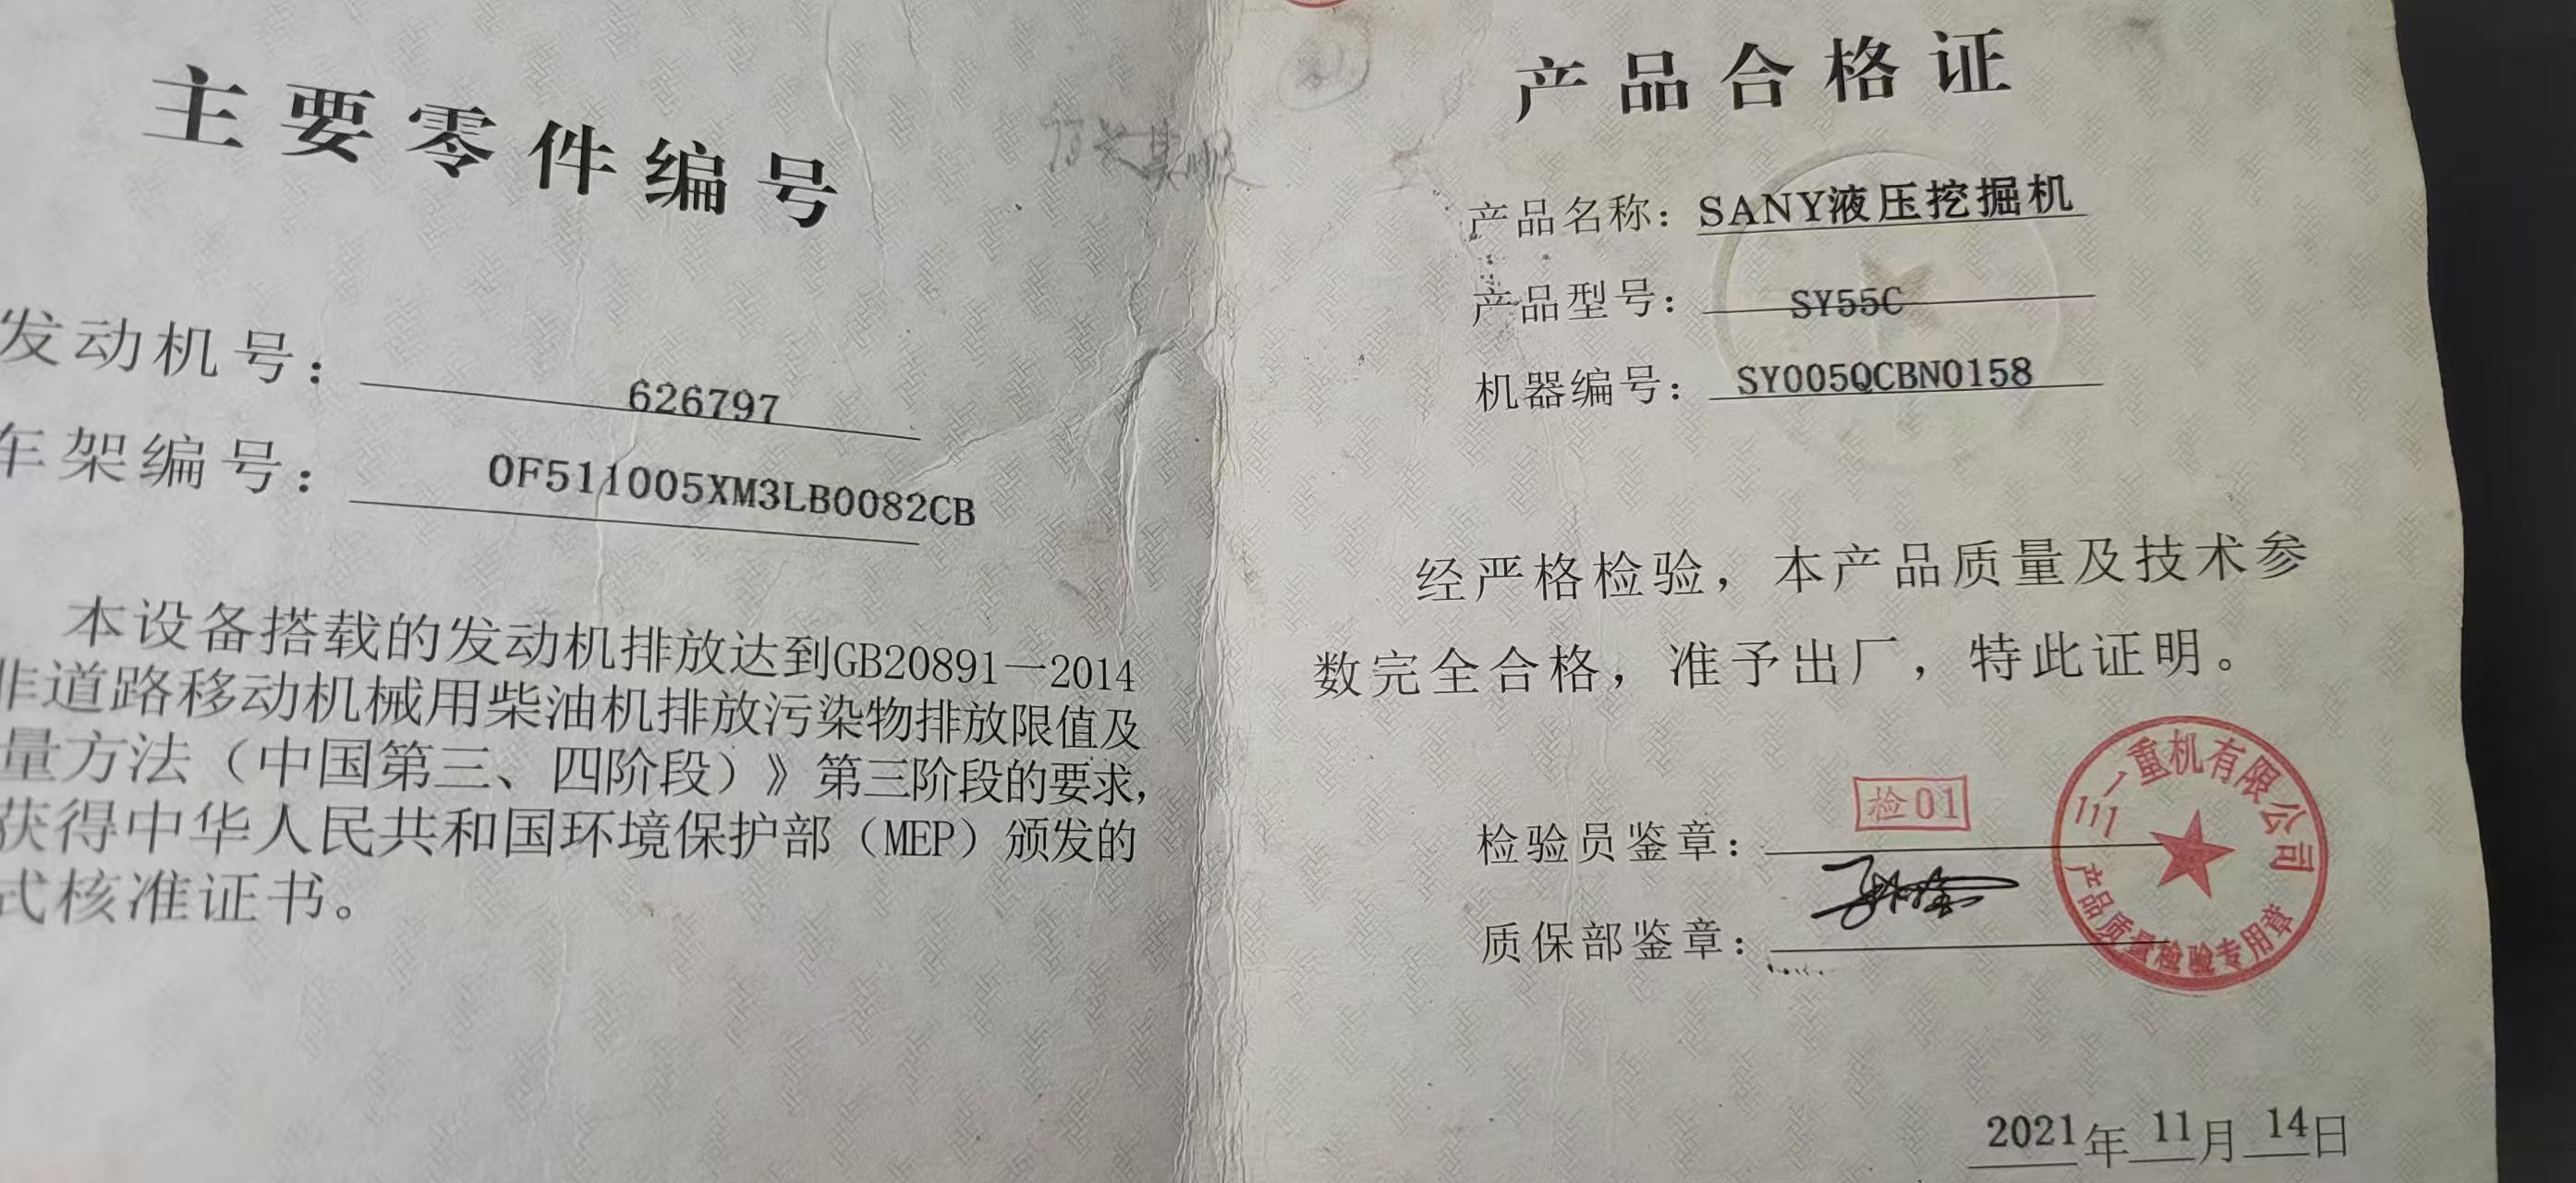 主要零件编号
发动机号：626797
车架编号：OF511005XM3LB0082CB
本设备搭载的发动机排放达到GB20891一2014
非道路移动机械用柴油机排放污染物排放限值及
量方法（中国第三、四阶段）》第三阶段的要求,
获得中华人民共和国环境保护部（MEP）颁发的
式核准证书。
产品合格证
产品名称：SANY液压挖掘机
产品型号：SY55C
机器编号：SY005QCBN0158
经严格检验，本产品质量及技术参
数完全合格，准予出厂，特此证明。
检验员鉴章：检01
质保部鉴章：
一重机有限公司
产品质量检验专用章
2021年11月14日